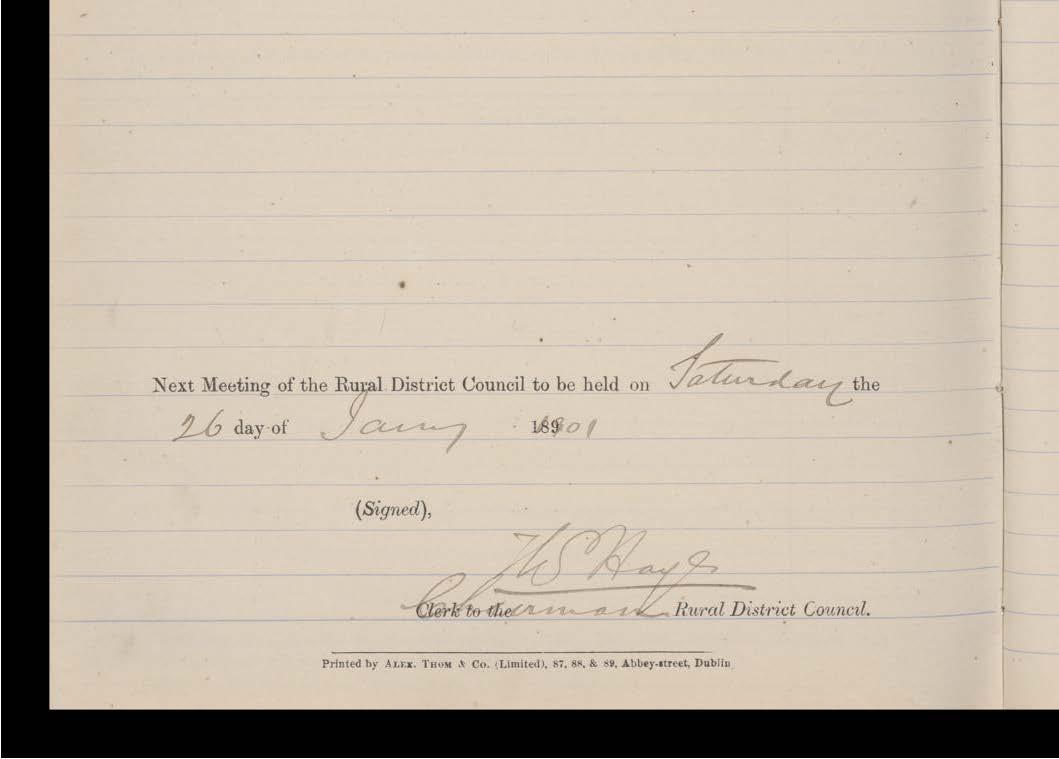 Next Meeting of the Rural District Council to be held on Saturday the
26 day of Jany 1901
(Signed),
Hays
Chairman Rural District Council.
Printed by ALEX. THOM & Co. (Limited), 87, 88, & 89, Abbey-street, Dublin